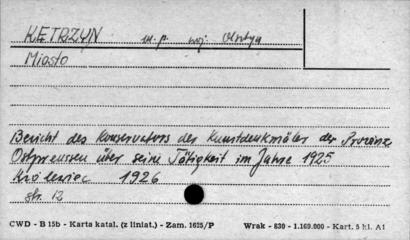 KĘTRZYN m.p. woj. Olsztyn
Miasto
Bericht des Konservators der Kunstdenkmäler der Provinz
Ostpreussen über seine Tätigkeit im Jahre 1925
Królewiec 1926
str. 12
CWD - B 15b - Karta katal. (z liniat.) - Zam. 1625/P Wrak - 830 - 1.169.000 - Kart. 5 kl. A1